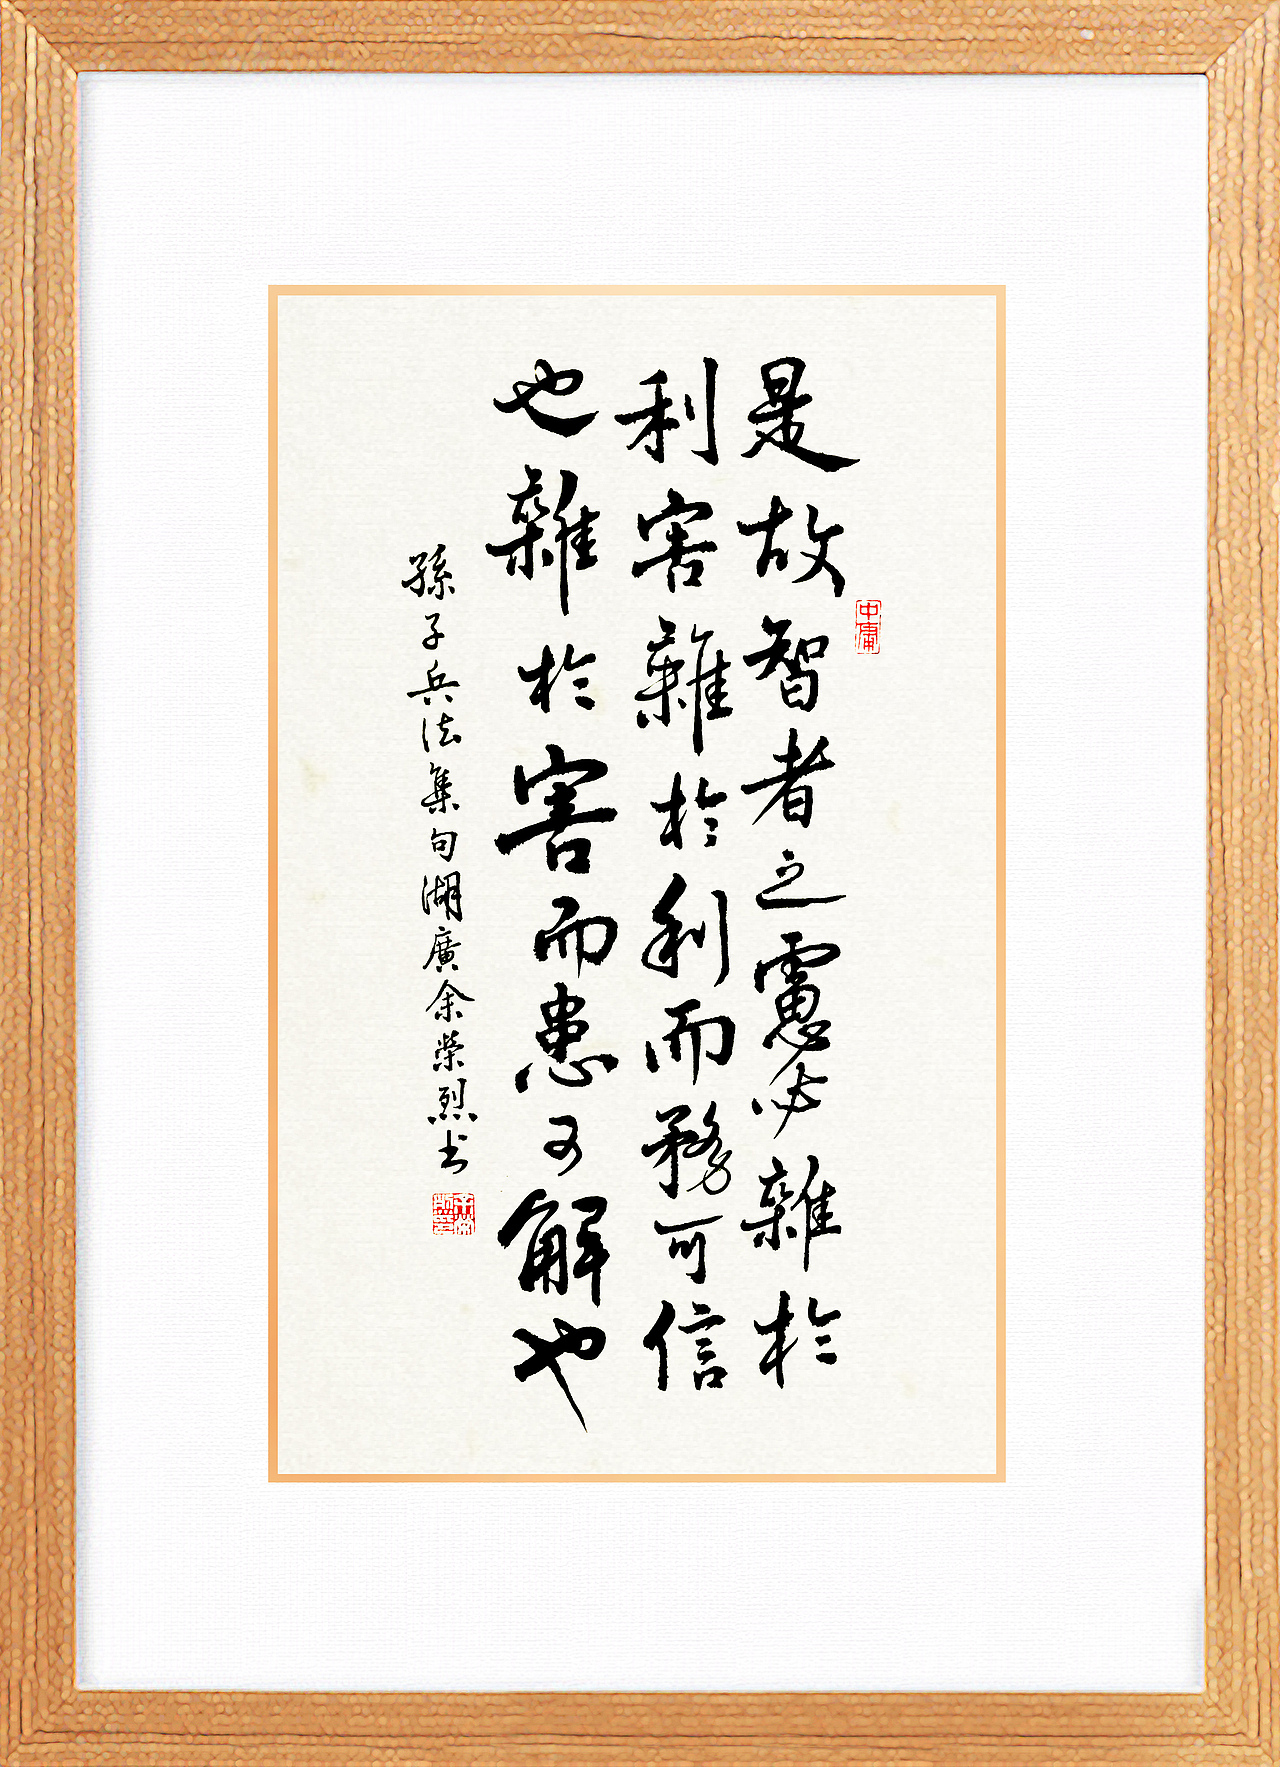 是故智者之慮必雜於
利害雜於利而務可信
也雜於害而患可解也
孫子兵法集句湖廣余榮烈书
中庸